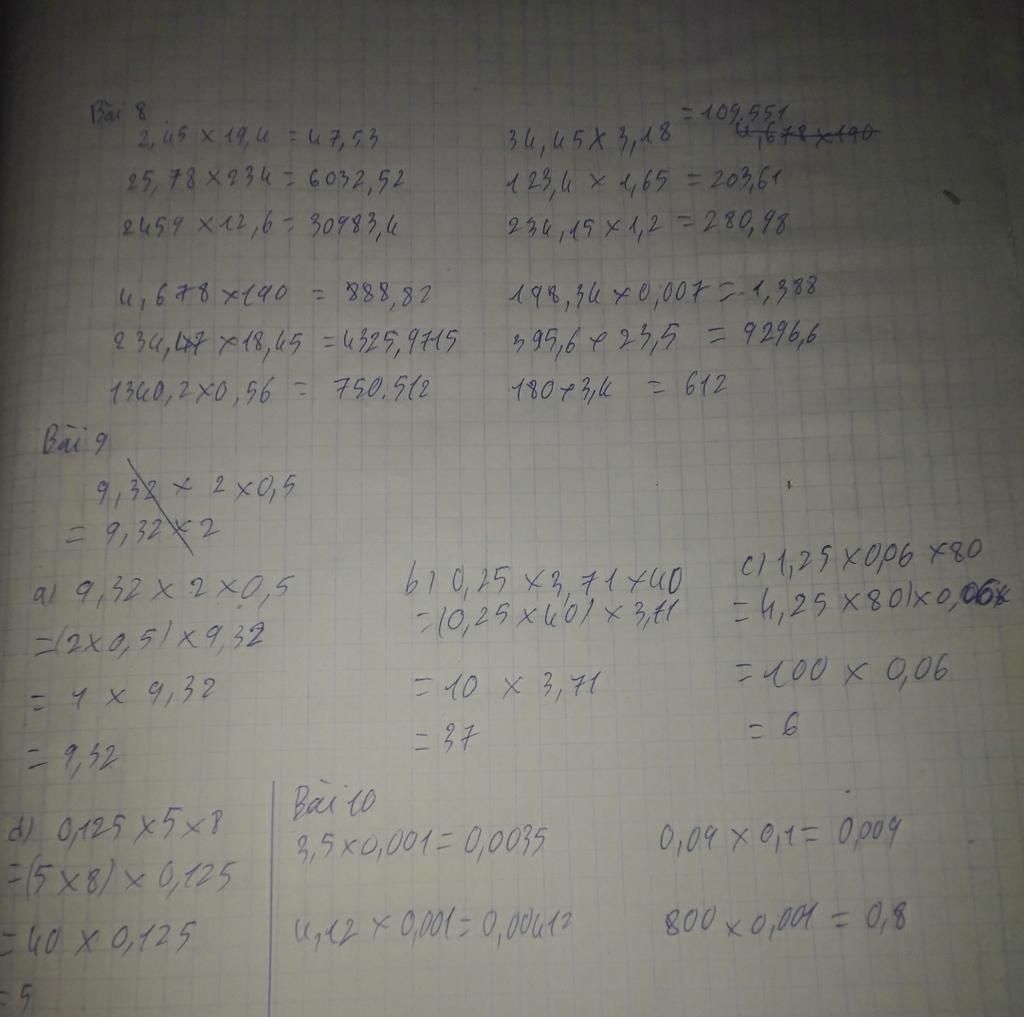 Bài 8
2,45 × 19,4 = 47,53
34,45 × 3,18 = 109.551
4,678 × 190
25,78 × 234 = 6032,52
123,4 × 1,65 = 203,61
2459 × 12,6 = 30983,4
234,15 × 1,2 = 280,98
4,678 × 190 = 888,82
198,34 × 0,007 = 1,388
234,47 × 18,45 = 4325,9715
395,6 × 23,5 = 9296,6
1340,2 × 0,56 = 750.512
180 × 3,4 = 612
Bài 9
9,32 × 2 × 0,5
= 9,32 × 2
a) 9,32 × 2 × 0,5
= (2 × 0,5) × 9,32
= 1 × 9,32
= 9,32
b) 0,25 × 3,71 × 40
= (0,25 × 40) × 3,71
= 10 × 3,71
= 37
c) 1,25 × 0,06 × 80
= (1,25 × 80) × 0,06
= 100 × 0,06
= 6
d) 0,125 × 5 × 8
= (5 × 8) × 0,125
= 40 × 0,125
= 5
Bài 10
3,5 × 0,001 = 0,0035
0,09 × 0,1 = 0,009
4,12 × 0,001 = 0,00412
800 × 0,001 = 0,8